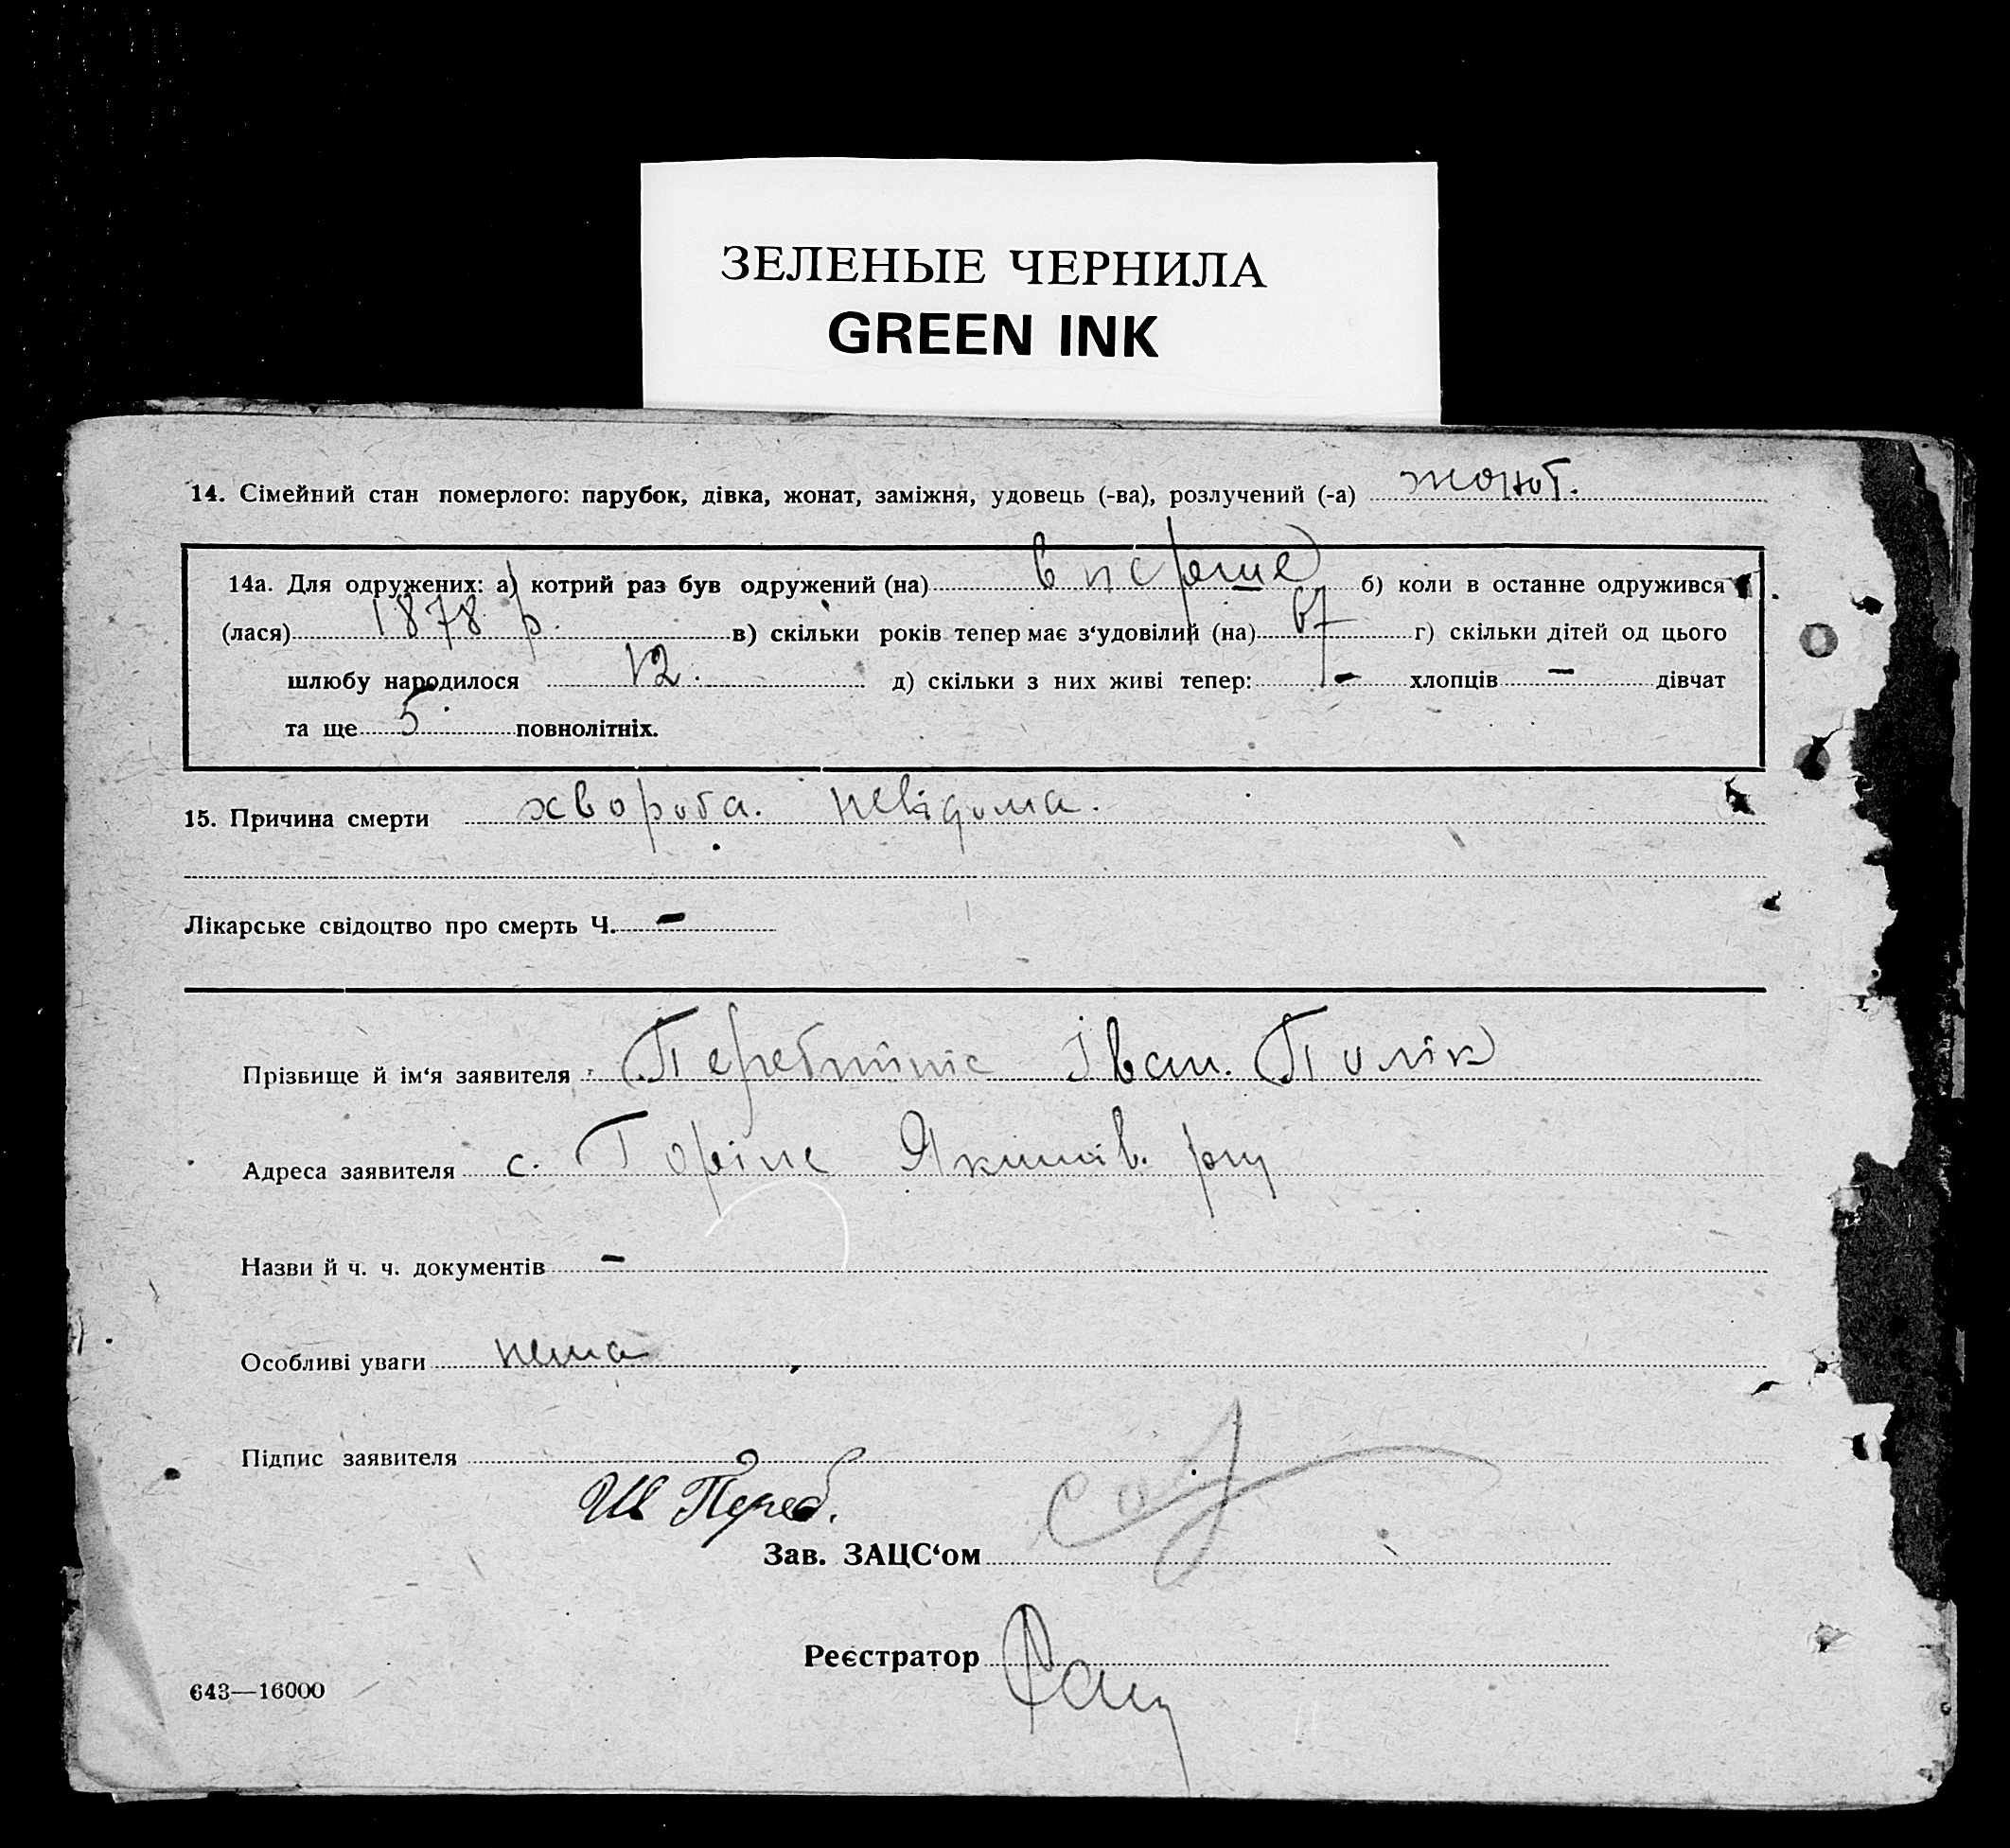 ЗЕЛЕНЫЕ ЧЕРНИЛА
GREEN INK
14. Сімейний стан померлого: парубок, дівка, жонат, заміжня, удовець (-ва), розлучений (-а) жонат.
14а. Для одружених: а) котрий раз був одружений (на) вперше б) коли в останне одружився
(лася) 1878 р. в) скільки років тепер має з‘удовілий (на) 67 г) скільки дітей од цього
шлюбу народилося 12. д) скільки з них живі тепер: – хлопців – дівчат
та ще 5 повнолітніх.
15. Причина смерти хвороба. невідома.
Лікарське свідоцтво про смерть Ч. –
Прізвище й ім‘я заявителя Іван.
Адреса заявителя с.
Назви й ч. ч. документів –
Особливі уваги нема
Підпис заявителя
Зав. ЗАЦС‘ом
Реєстратор
643—16000